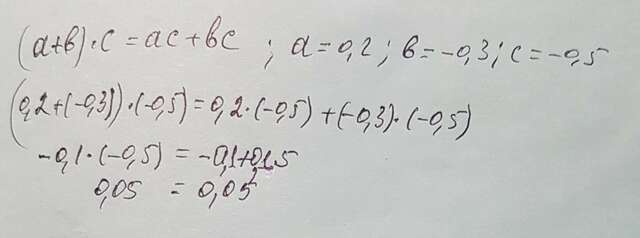 (a+b)·c=ac+bc ; a=0,2; b=-0,3; c=-0,5
(0,2+(-0,3))·(-0,5)=0,2·(-0,5)+(-0,3)·(-0,5)
-0,1·(-0,5)=-0,1+0,15
0,05 = 0,05